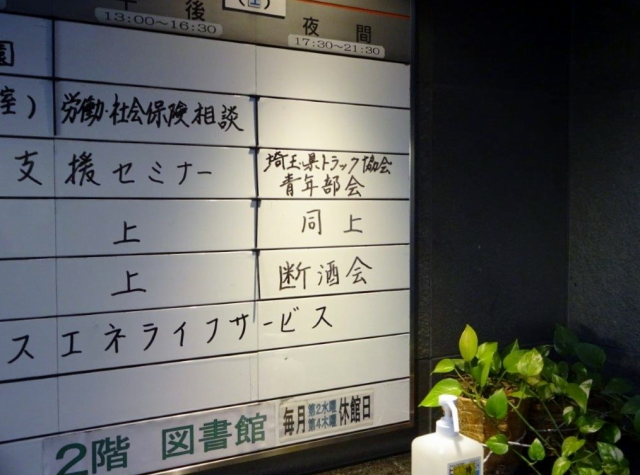 午後 夜間
13:00～16:30 17:30～21:30
室) 労働・社会保険相談
支援セミナー 埼玉県トラック協会
青年部会
上 同上
上 断酒会
スエネライフサービス
2階 図書館 毎月 第2水曜 休館日
第4木曜